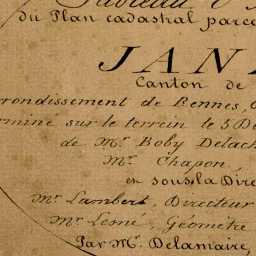 Tableau d
du Plan cadastral parce
JAN
Canton de
rondissement de Rennes,
rminé sur le terrein le 5 D
de Mr. Boby Delach
Mr. Chapon,
en sous la Dire
Mr. Lambert, Directeur
Mr. Lesné, Géomètre
Par Mr. Delamaire,